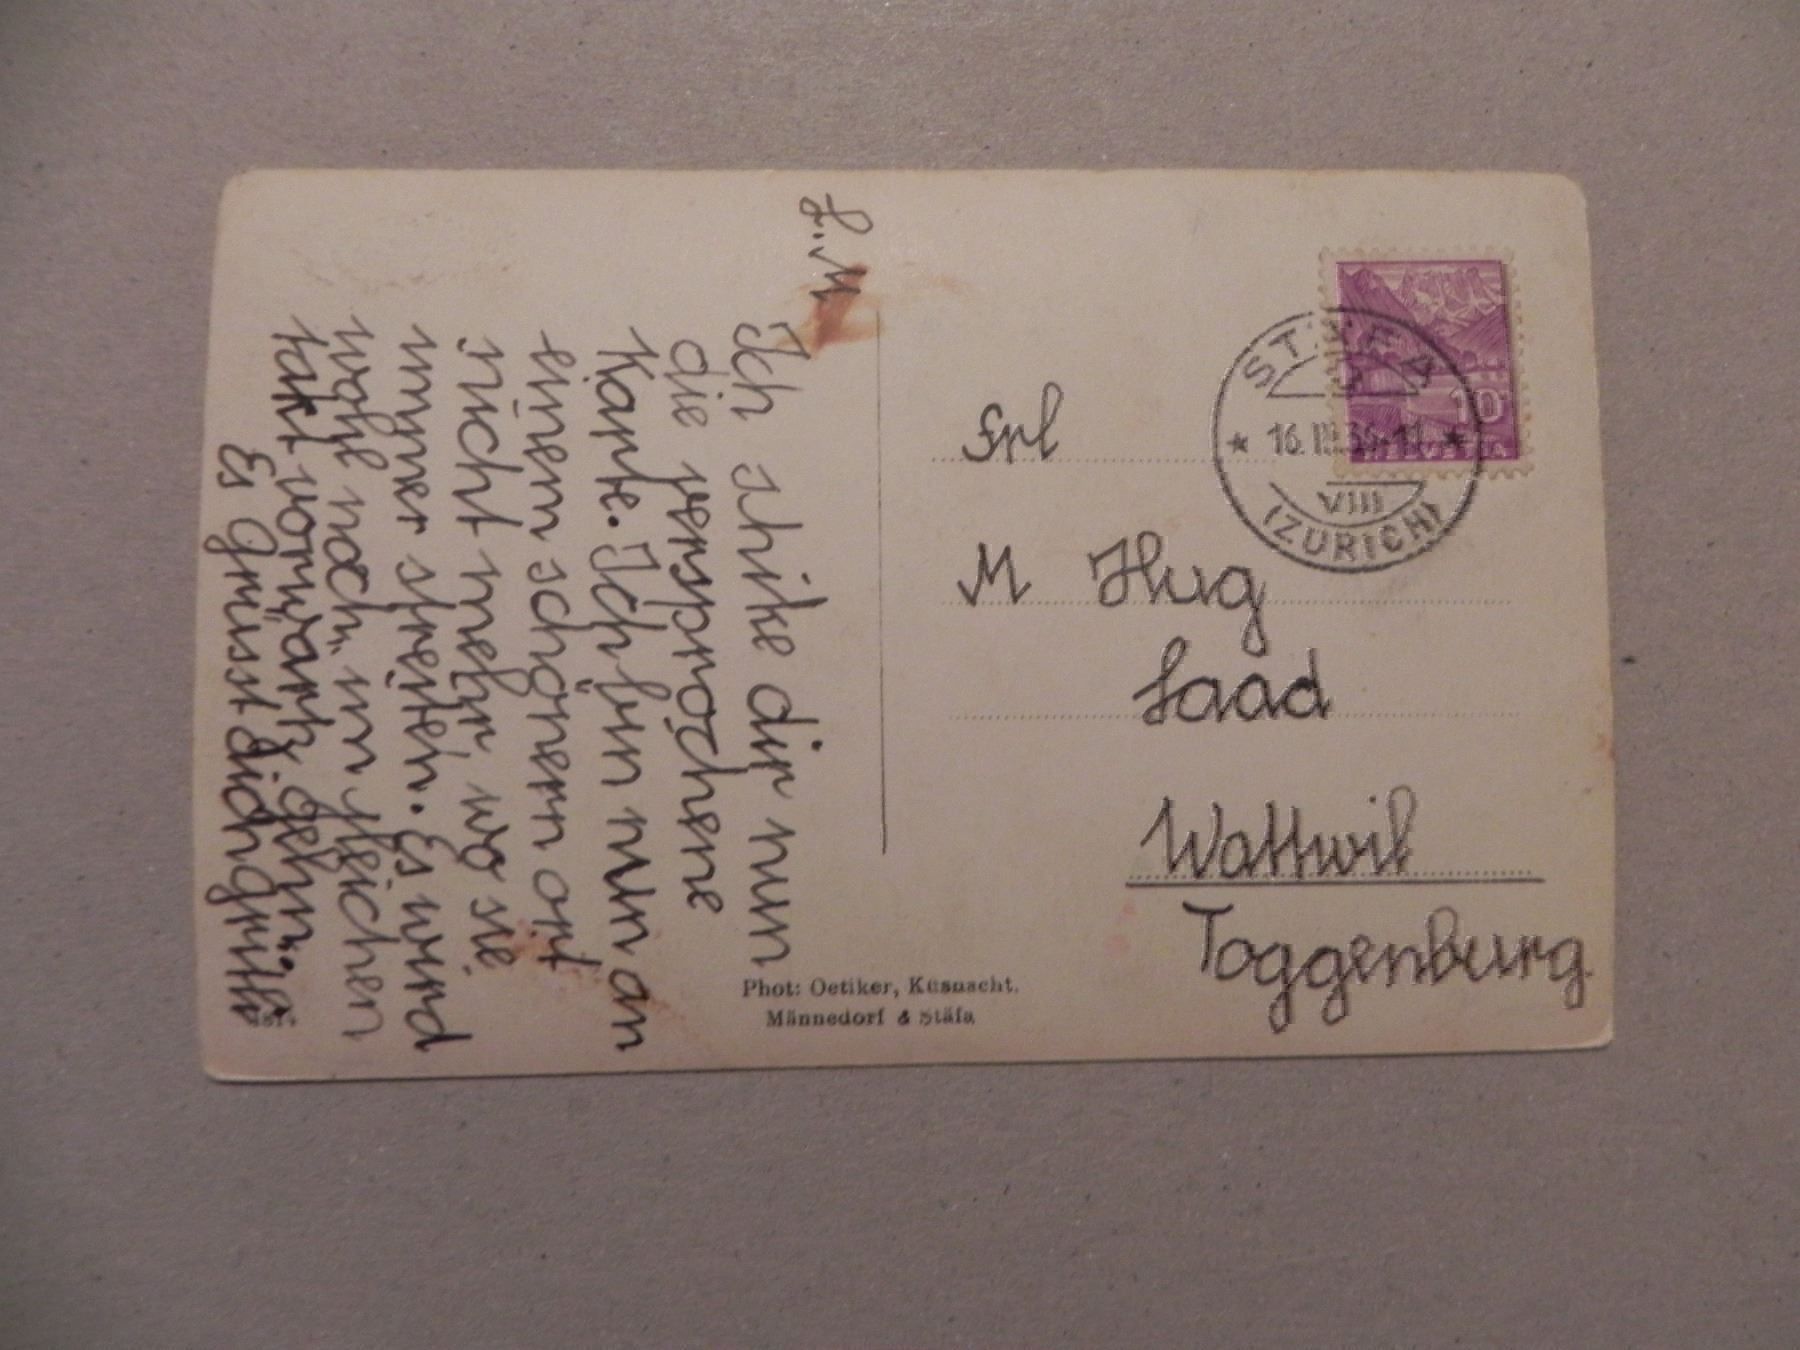 L. M
Ich schike dir nun
die versprochene
Karte. Ich bin nun an
einem schönern ort
nicht mehr wo sie
immer streiten. Es wird
wohl noch im gleichen
takt vorwärts gehn.
Es Grüsst dich
Frl
M Hug
Laad
Wattwil
Toggenburg
STÄFA
16. III. 11
VIII
(ZÜRICH)
10
HELVETIA
Phot: Oetiker, Küsnacht.
Männedorf & Stäfa